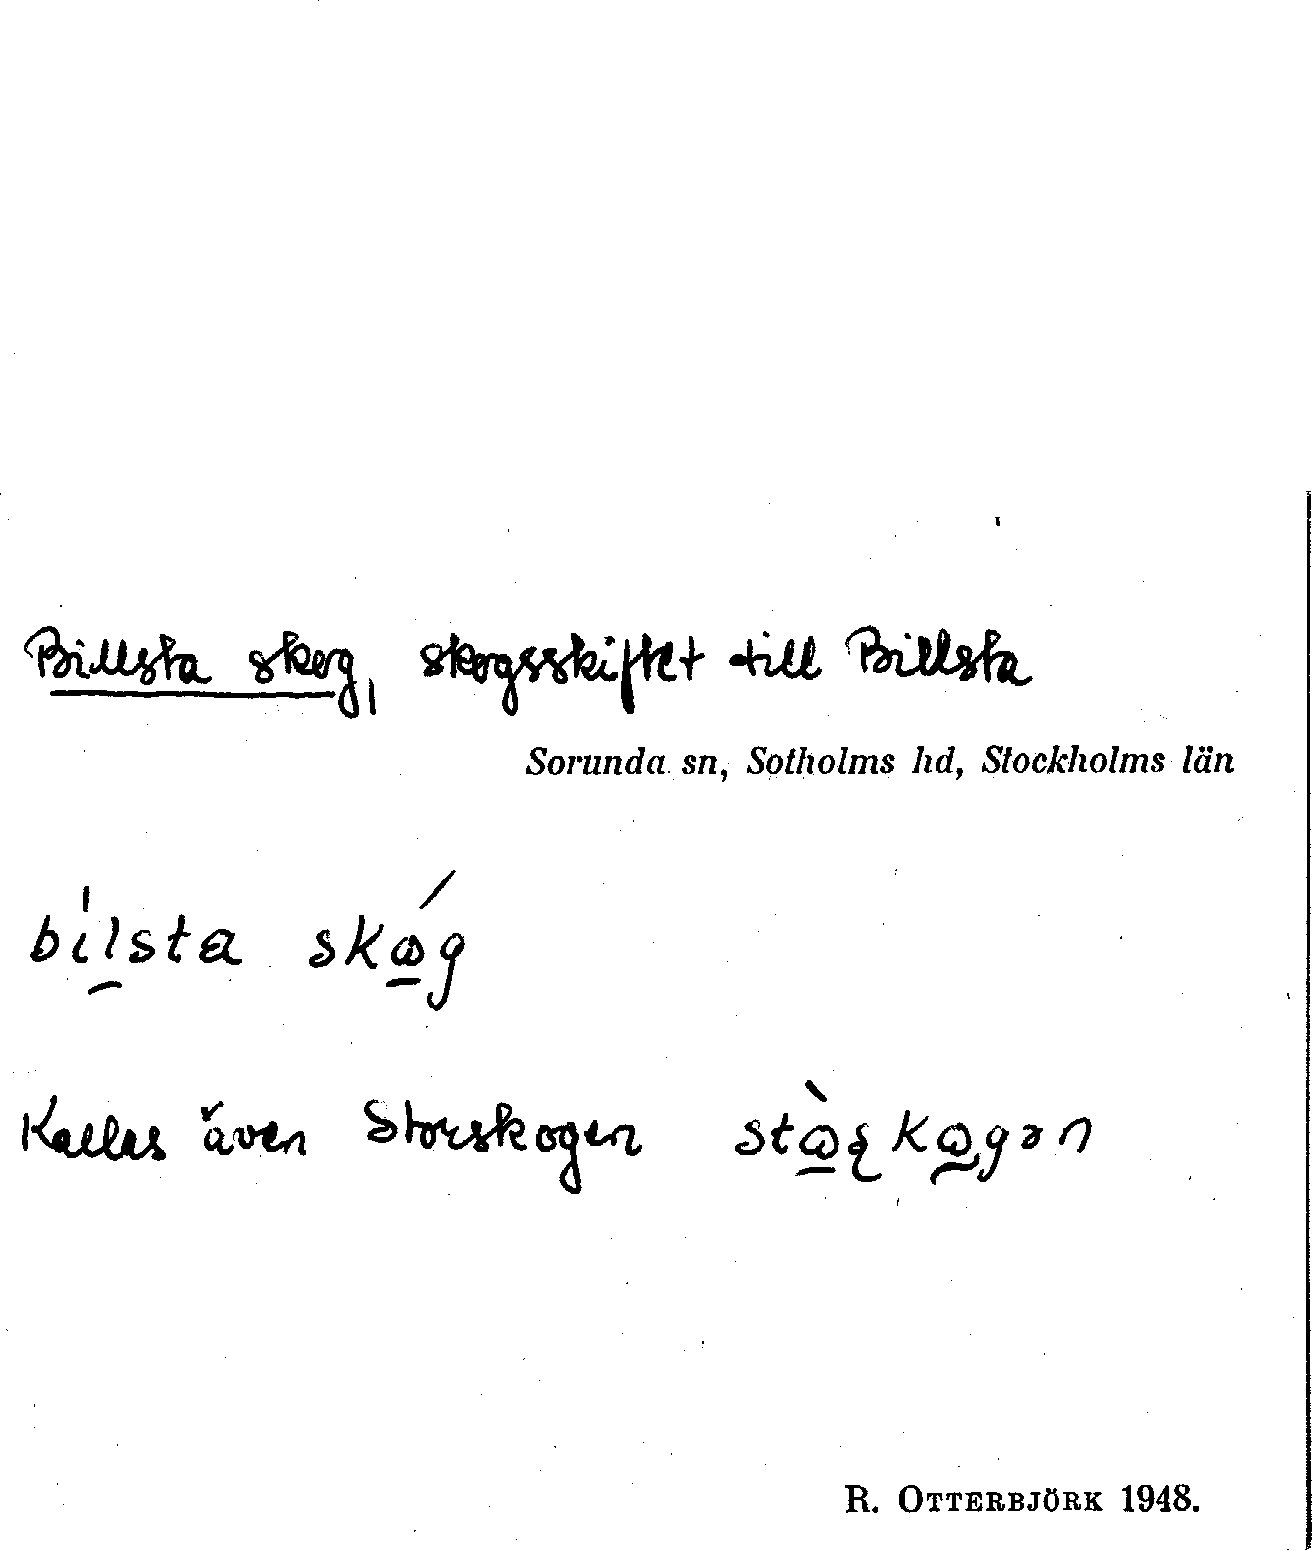 Billsta skog, skogsskiftet till Billsta
Sorunda sn, Sotholms hd, Stockholms län
bílsta skǿg
Kallas även Storskogen
R. OTTERBJÖRK 1948.